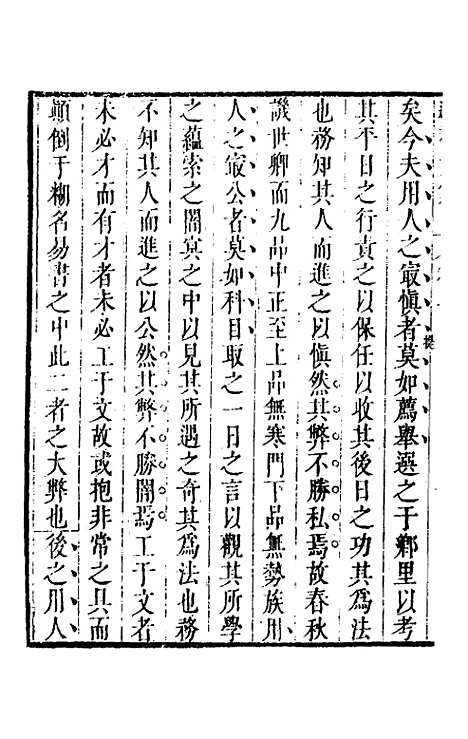 矣今夫用人之最慎者莫如薦舉選之于鄉里以考
其平日之行責之以保任以收其後日之功其為法
也務知其人而進之以慎然其弊不勝私焉故春秋
譏世卿而九品中正至上品無寒門下品無勢族用
人之最公者莫如科目取之一日之言以觀其所學
之蘊索之闇冥之中以見其所遇之奇其為法也務
不知其人而進之以公然其弊不勝闇焉工于文者
未必才而有才者未必工于文故或抱非常之具而
顛倒于糊名易書之中此二者之大弊也後之用人